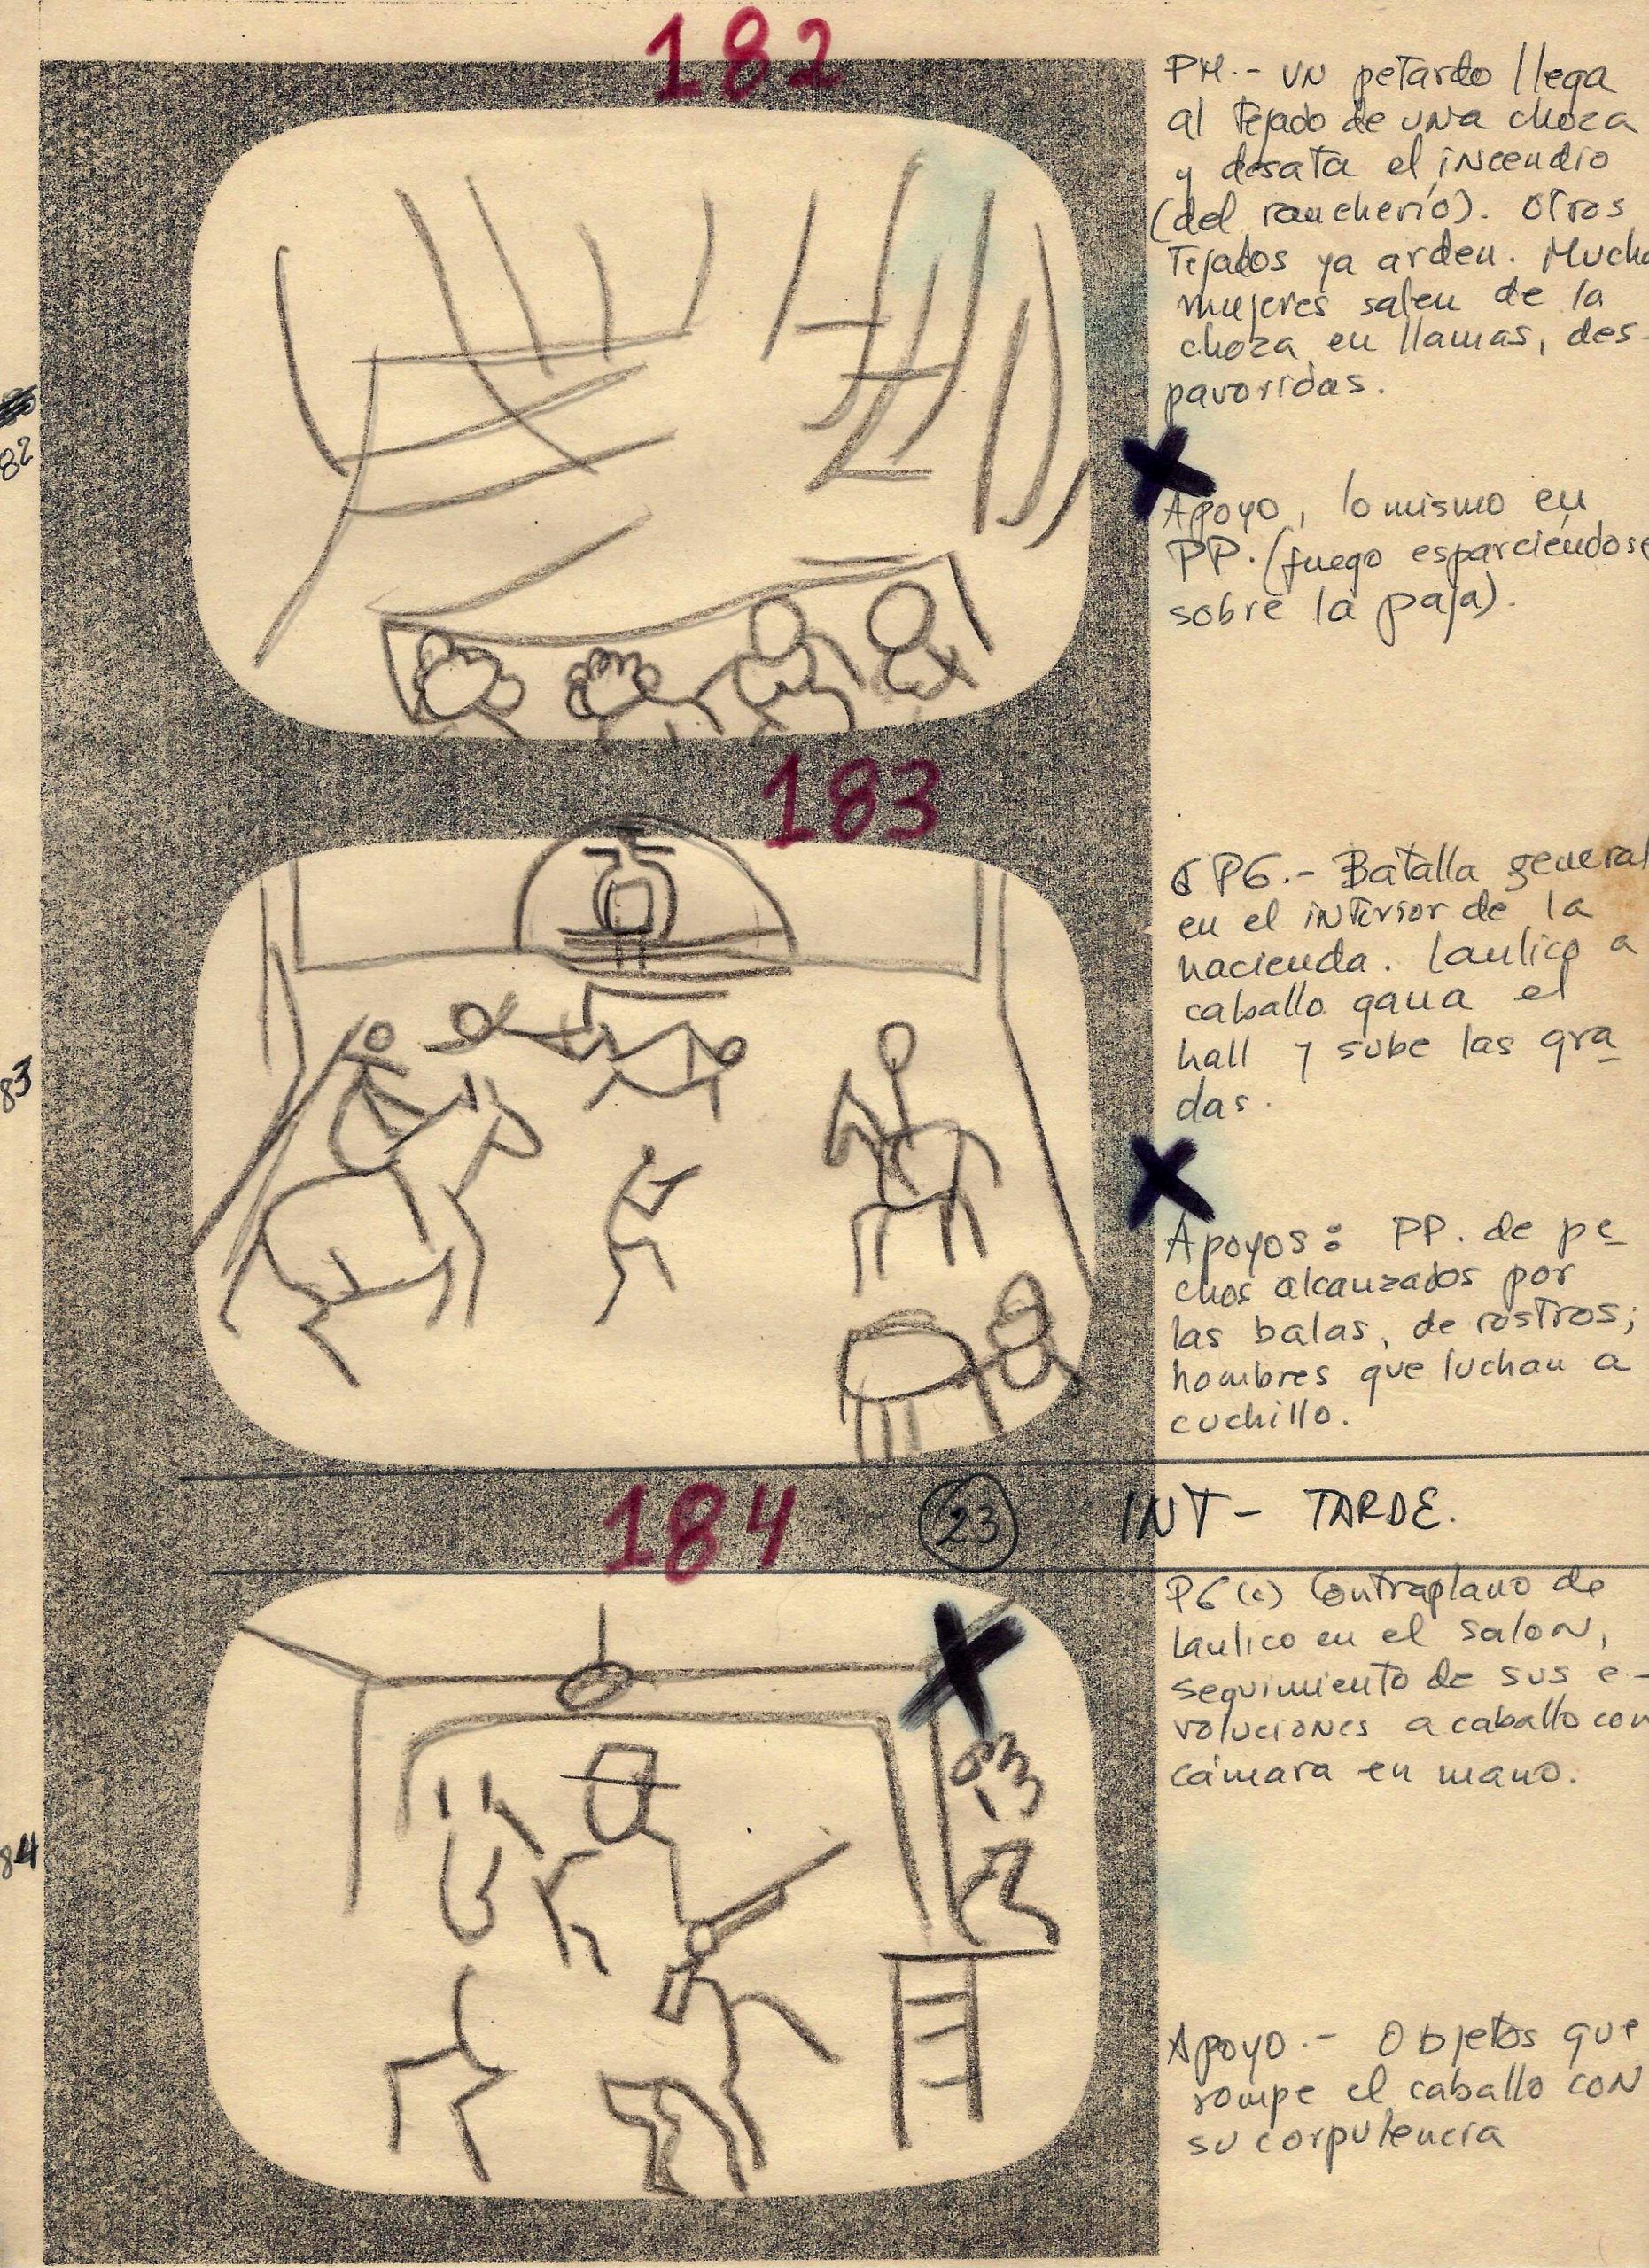 182
PM.- UN petardo llega
al tejado de una choza
y desata el incendio
(del rancherío). Otros
Tejados ya arden. Mucha
mujeres salen de la
choza en llamas, des-
pavoridas.
82
Apoyo, lo mismo en
PP. (fuego esparciéndose
sobre la paja).
183
PG.- Batalla general
en el interior de la
hacienda. Laulico a
caballo gana el
hall y sube las gra
das.
83
Apoyos: PP. de pe
chos alcanzados por
las balas, de rostros;
hombres que luchan a
cuchillo.
184
23
INT - TARDE.
PG (c) Contraplano de
Laulico en el salon,
seguimiento de sus e-
voluciones a caballo con
cámara en mano.
84
Apoyo.- Objetos que
rompe el caballo con
su corpulencia